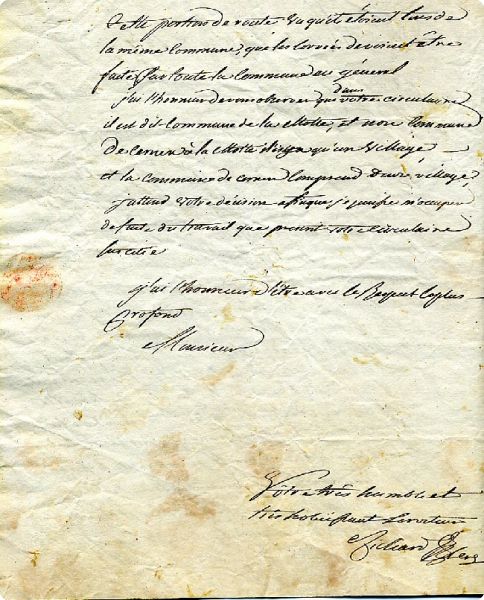 Cette portion de route vu qu'il étoient lus de
la même commune, que les Corvées devoient être
faite par toute la Commune en général
j'ai l'honneur de vous observer que dans votre circulaire
il est dit Commune de la Motte, et non Commune
De Cernen à la Motte n'étoit qu'un village
et la commune de Cernen Comprend d'autre village,
j'attend votre décision afin que je puisse m'occuper
de suite du travail que présent votre circulaire
sur cité
j'ai l'honneur d'être avec le Respect le plus
profond
Monsieur
Votre très humble et
très hobéissant Serviteur
Richard